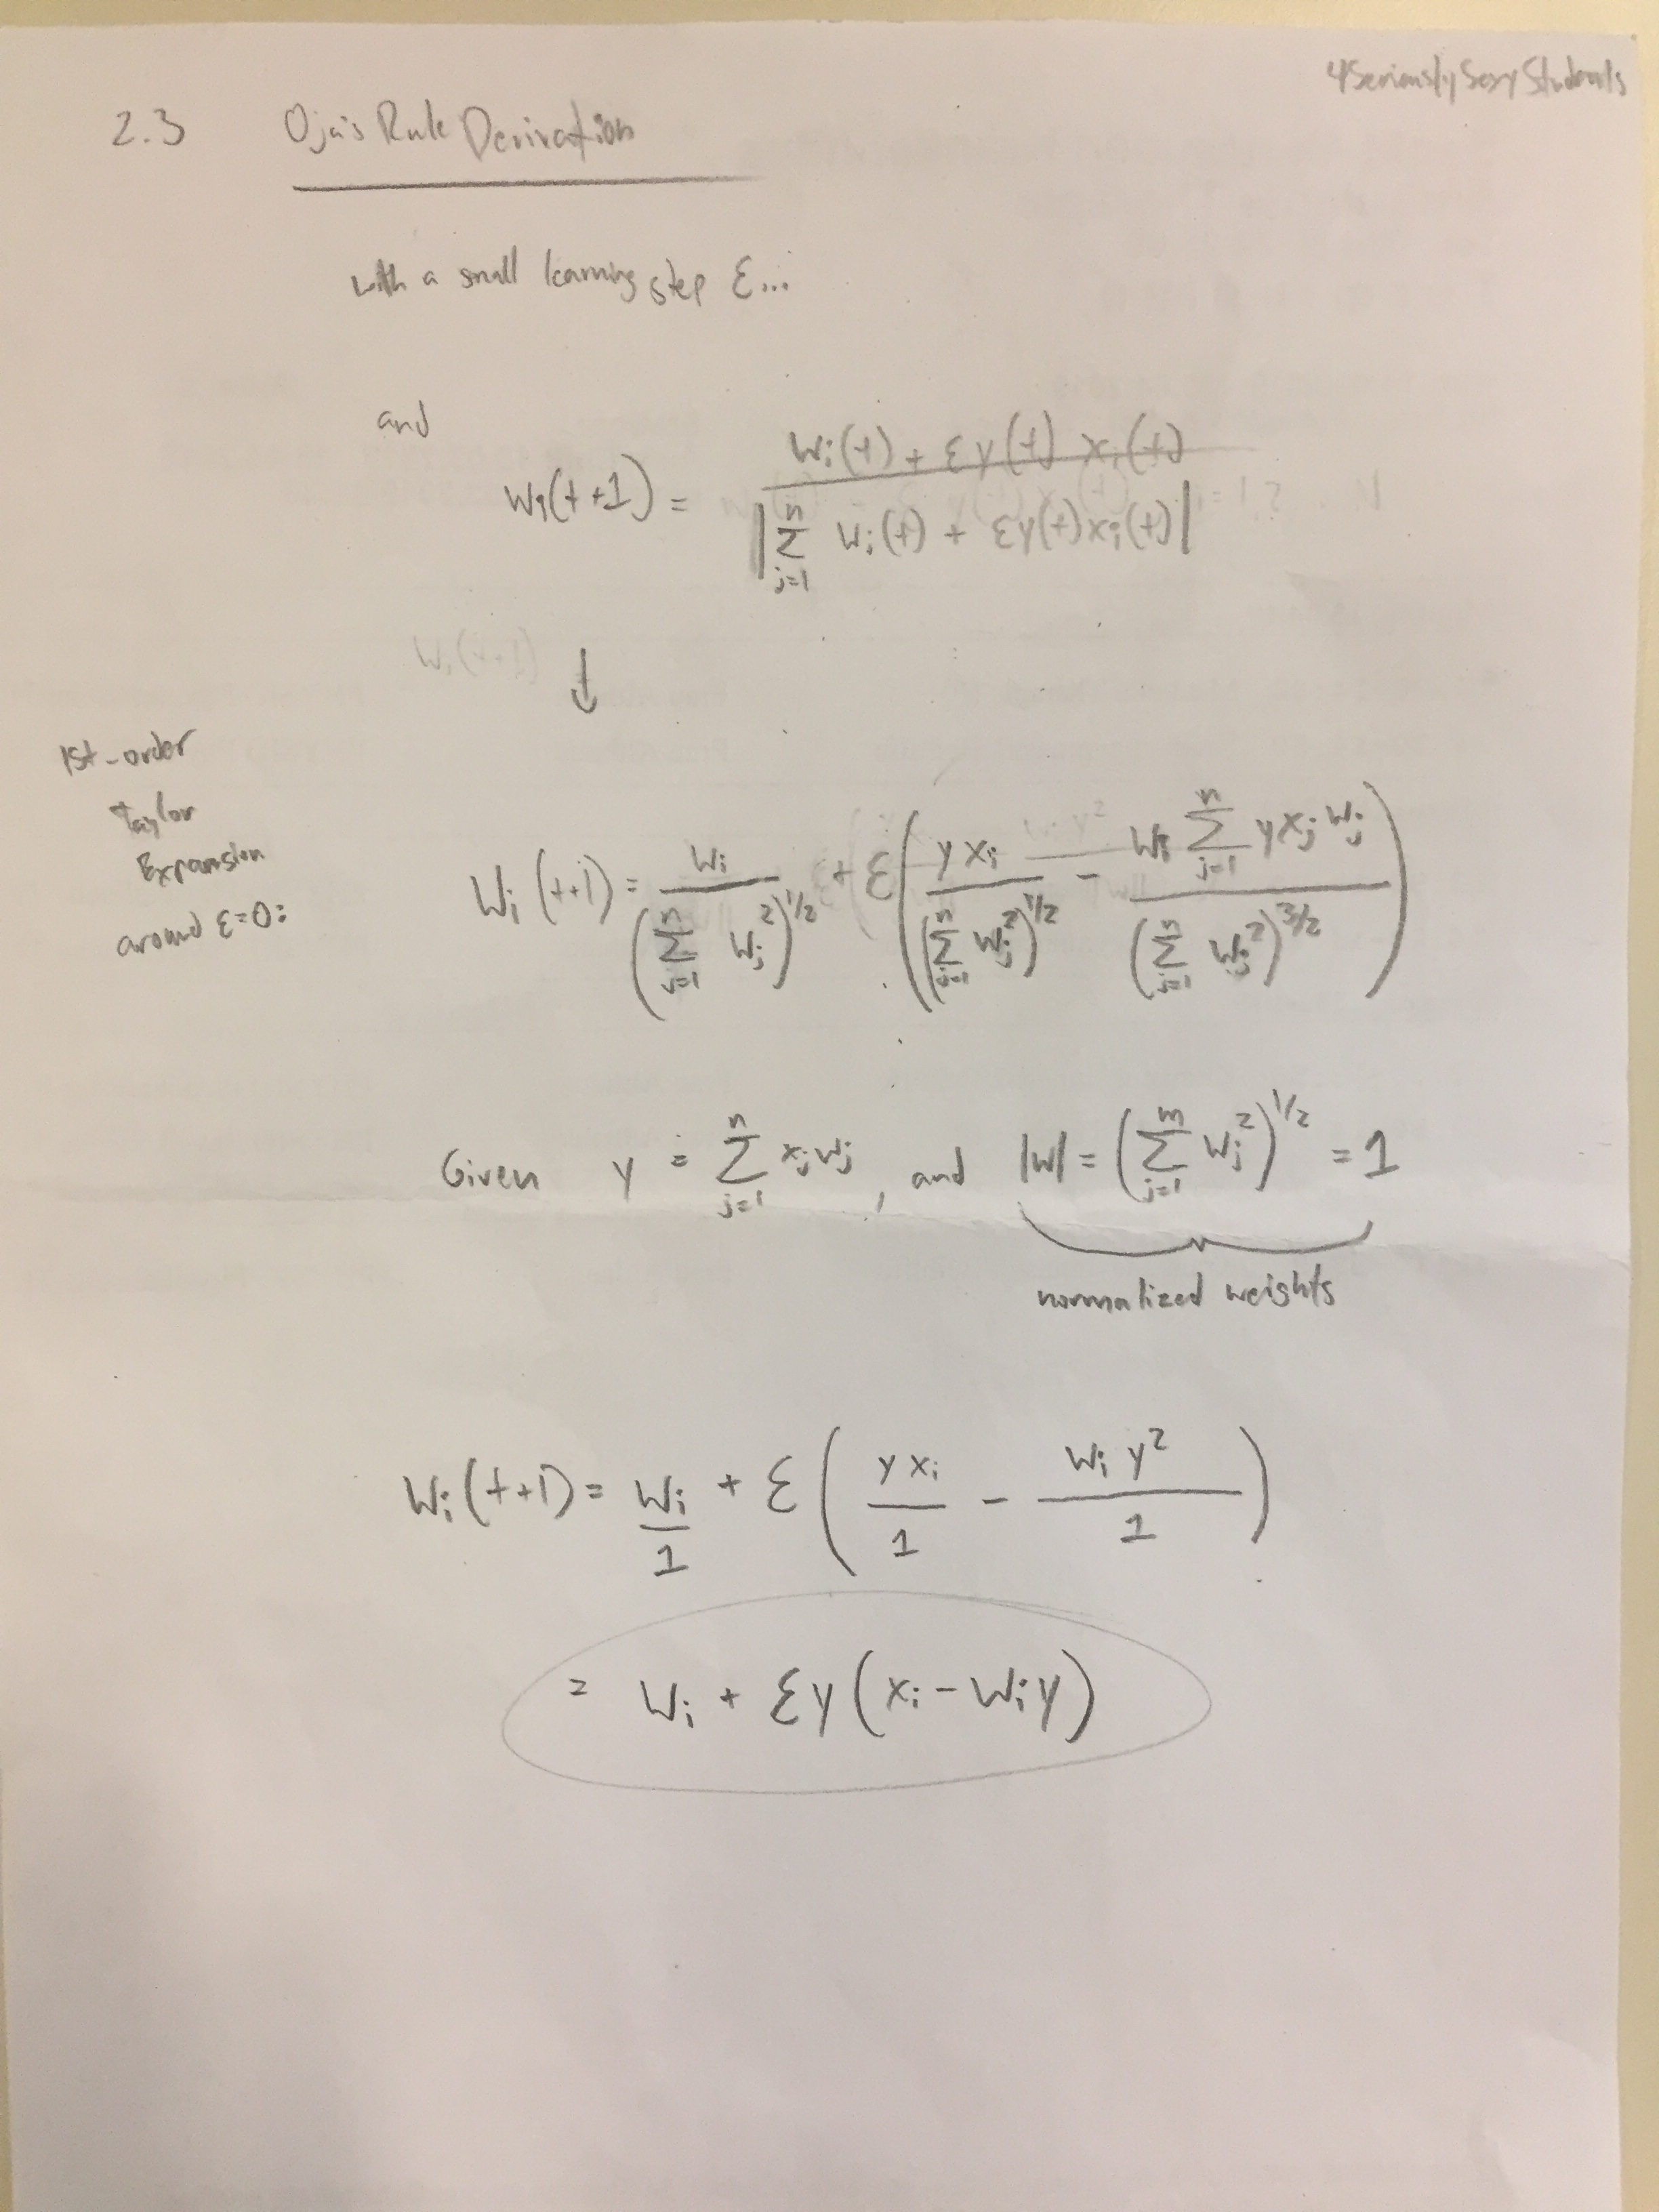 4SeriouslySexyStudents
2.3 Oja's Rule Derivation
with a small learning step ε...
and
w_i(t+1) = (w_i(t) + εy(t) x_i(t)) / |∑_{j=1}^{n} w_i(t) + εy(t)x_i(t)|
w_i(t+1) ↓
1st-order
Taylor
Expansion
around ε=0:
w_i(t+1) = w_i / (∑_{j=1}^{n} w_j^2)^{1/2} + ε( y x_i / (∑_{j=1}^{n} w_j^2)^{1/2} - w_i ∑_{j=1}^{n} y x_j w_j / (∑_{j=1}^{n} w_j^2)^{3/2} )
Given y = ∑_{j=1}^{n} x_j w_j, and |w| = (∑_{j=1}^{m} w_j^2)^{1/2} = 1
normalized weights
w_i(t+1) = w_i/1 + ε( y x_i / 1 - w_i y^2 / 1 )
= w_i + εy(x_i - w_i y)